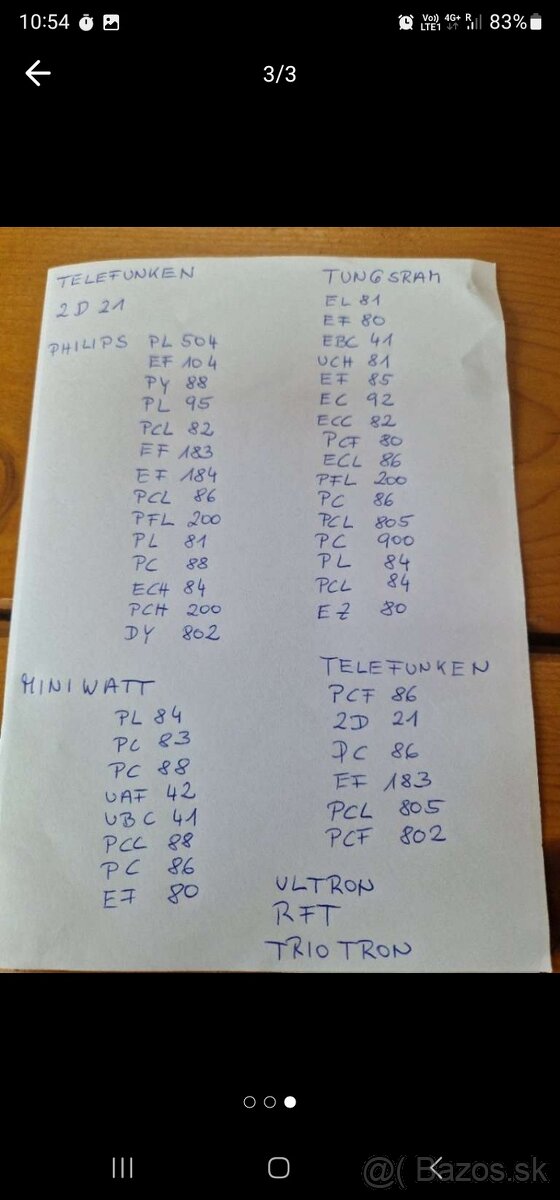 10:54
Vo)) 4G+ R
LTE1 83%
3/3
TELEFUNKEN
2D 21
PHILIPS PL 504
EF 104
PY 88
PL 95
PCL 82
EF 183
EF 184
PCL 86
PFL 200
PL 81
PC 88
ECH 84
PCH 200
DY 802
MINIWATT
PL 84
PC 83
PC 88
UAF 42
UBC 41
PCC 88
PC 86
EF 80
TUNGSRAM
EL 81
EF 80
EBC 41
UCH 81
EF 85
EC 92
ECC 82
PCF 80
ECL 86
PFL 200
PC 86
PCL 805
PC 900
PL 84
PCL 84
EZ 80
TELEFUNKEN
PCF 86
2D 21
PC 86
EF 183
PCL 805
PCF 802
ULTRON
RFT
TRIOTRON
@( Bazos.sk